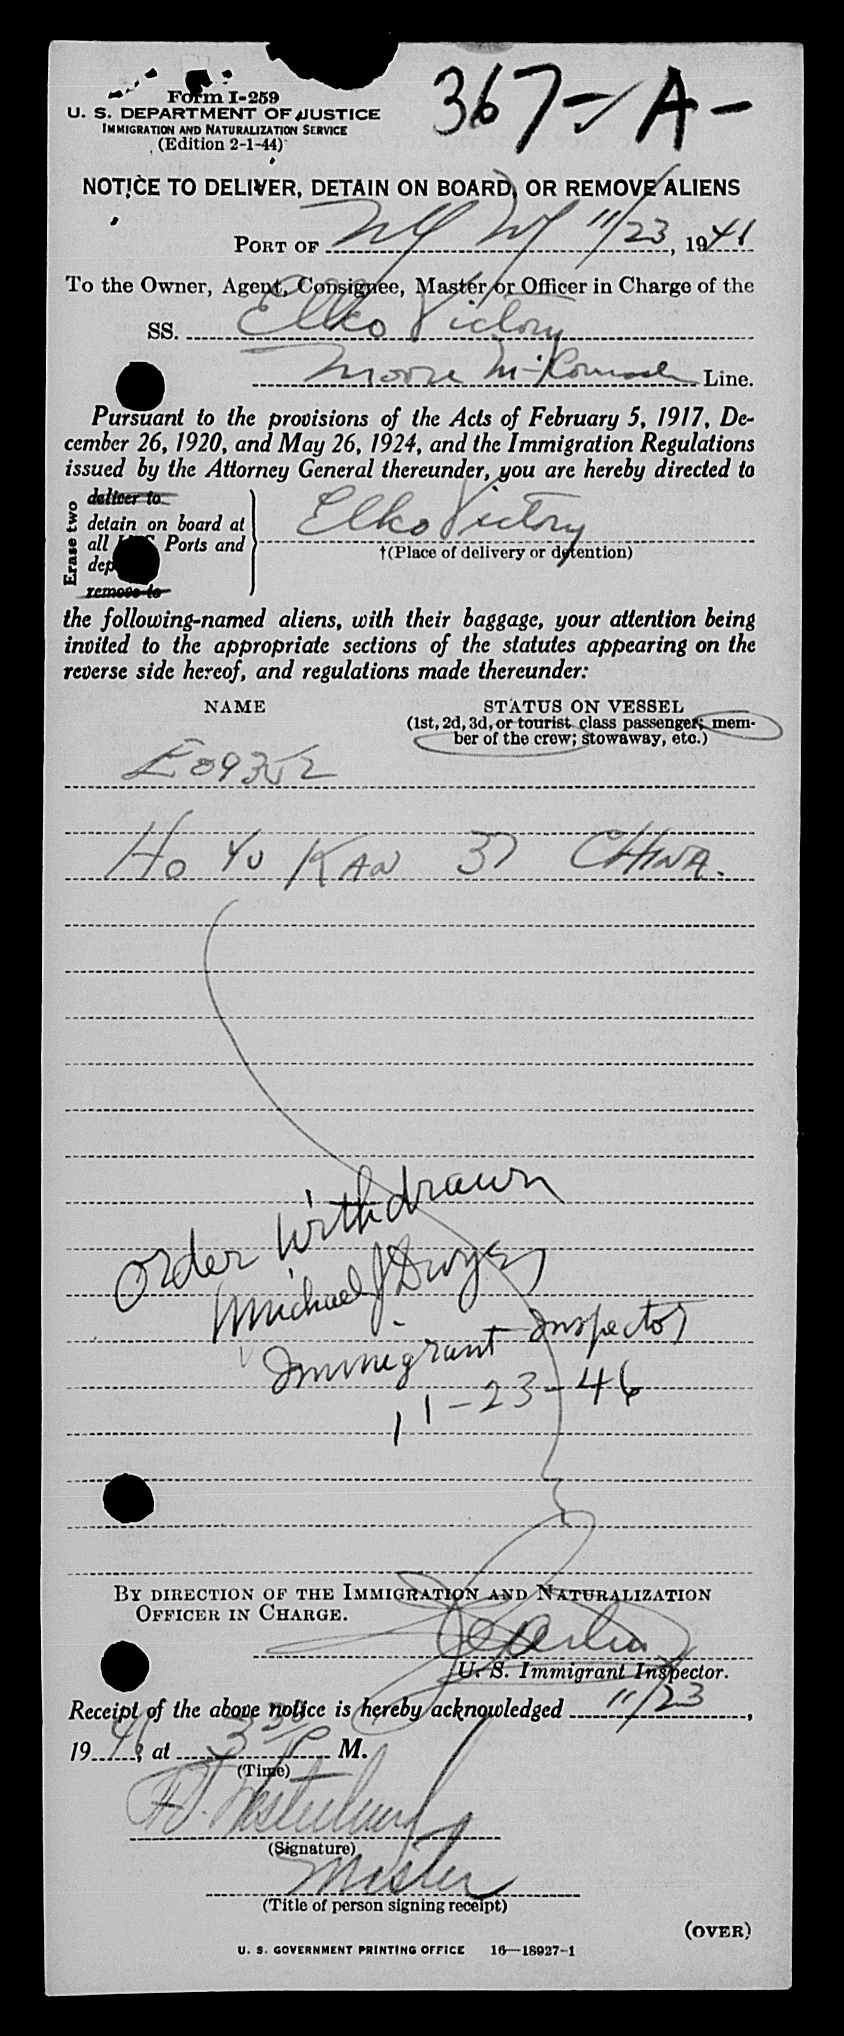 367-A-
Form I-259
U. S. DEPARTMENT OF JUSTICE
IMMIGRATION AND NATURALIZATION SERVICE
(Edition 2-1-44)
NOTICE TO DELIVER, DETAIN ON BOARD, OR REMOVE ALIENS
PORT OF NY NY 11/23, 1946
To the Owner, Agent, Consignee, Master or Officer in Charge of the
SS. Elko Victory
Moore Line.
Pursuant to the provisions of the Acts of February 5, 1917, De-
cember 26, 1920, and May 26, 1924, and the Immigration Regulations
issued by the Attorney General thereunder, you are hereby directed to
Erase two
deliver to
detain on board at
all Ports and
dep
remove to
Elko Victory
†(Place of delivery or detention)
the following-named aliens, with their baggage, your attention being
invited to the appropriate sections of the statutes appearing on the
reverse side hereof, and regulations made thereunder:
NAME STATUS ON VESSEL
(1st, 2d, 3d, or tourist class passenger; mem-
ber of the crew; stowaway, etc.)
E09352
HO YU KAN 37 CHINA.
Order Withdrawn
Michael J Dwyer
Immigrant Inspector
11-23-46
BY DIRECTION OF THE IMMIGRATION AND NATURALIZATION
OFFICER IN CHARGE.
U. S. Immigrant Inspector.
Receipt of the above notice is hereby acknowledged 11/23,
1946, at 3 30 P M.
(Time)
(Signature)
Master
(Title of person signing receipt)
(OVER)
U. S. GOVERNMENT PRINTING OFFICE 16—18927-1